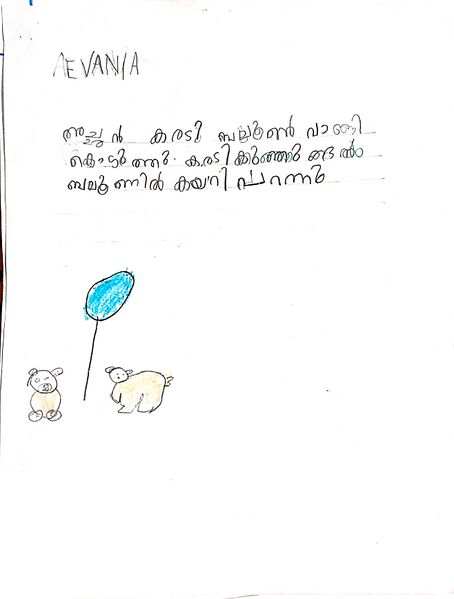 AEVANIA
അച്ഛൻ കരടി ബലൂൺ വാങ്ങി
കൊടുത്തു. കരടിക്കുഞ്ഞുങ്ങൾ
ബലൂണിൽ കയറി പറന്നു